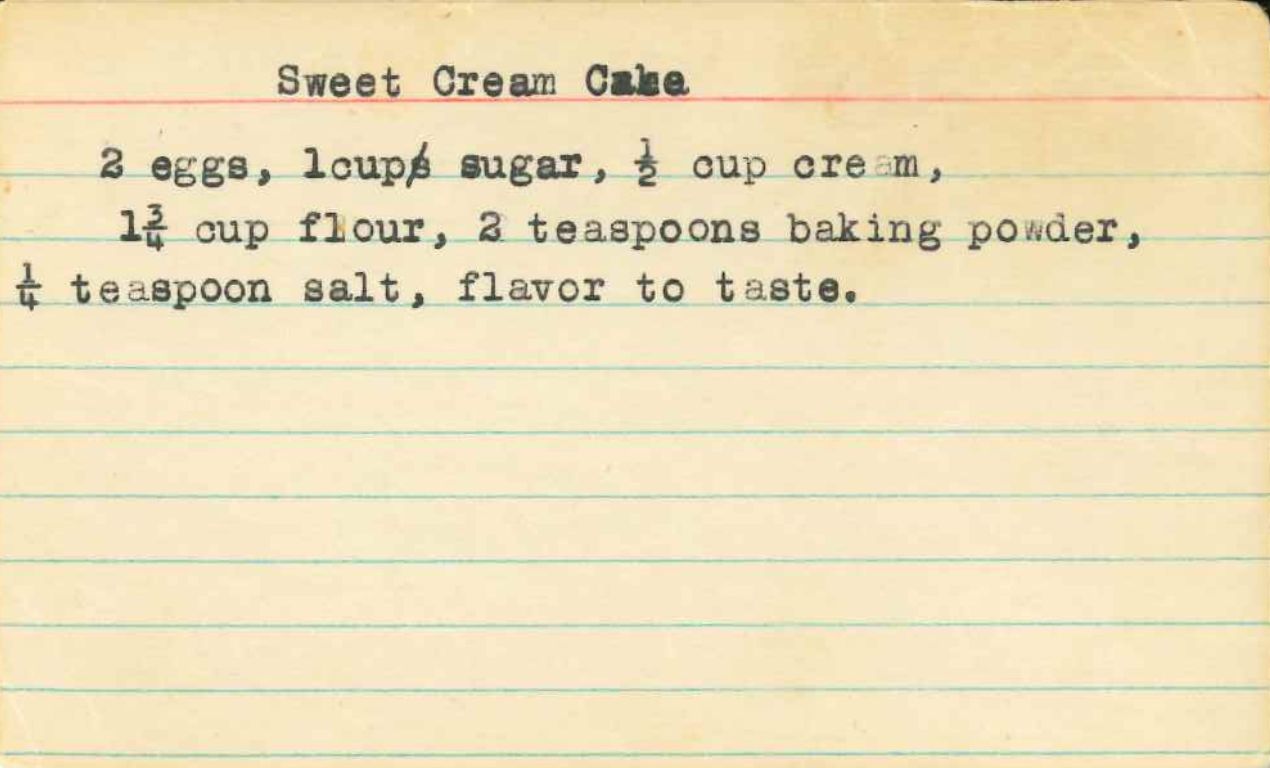 Sweet Cream Cake
2 eggs, 1cup sugar, ½ cup cream,
1¾ cup flour, 2 teaspoons baking powder,
¼ teaspoon salt, flavor to taste.